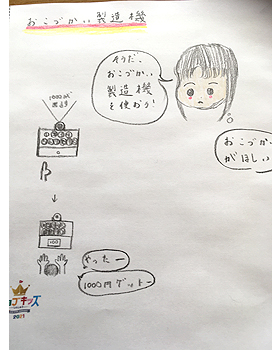 おこづかい製造機
そうだ、
おこづかい
製造機
を使おう!
おこづか
がほしい
1000円が
出ます
100
やったー
1000円ゲットー
キッズ
2021